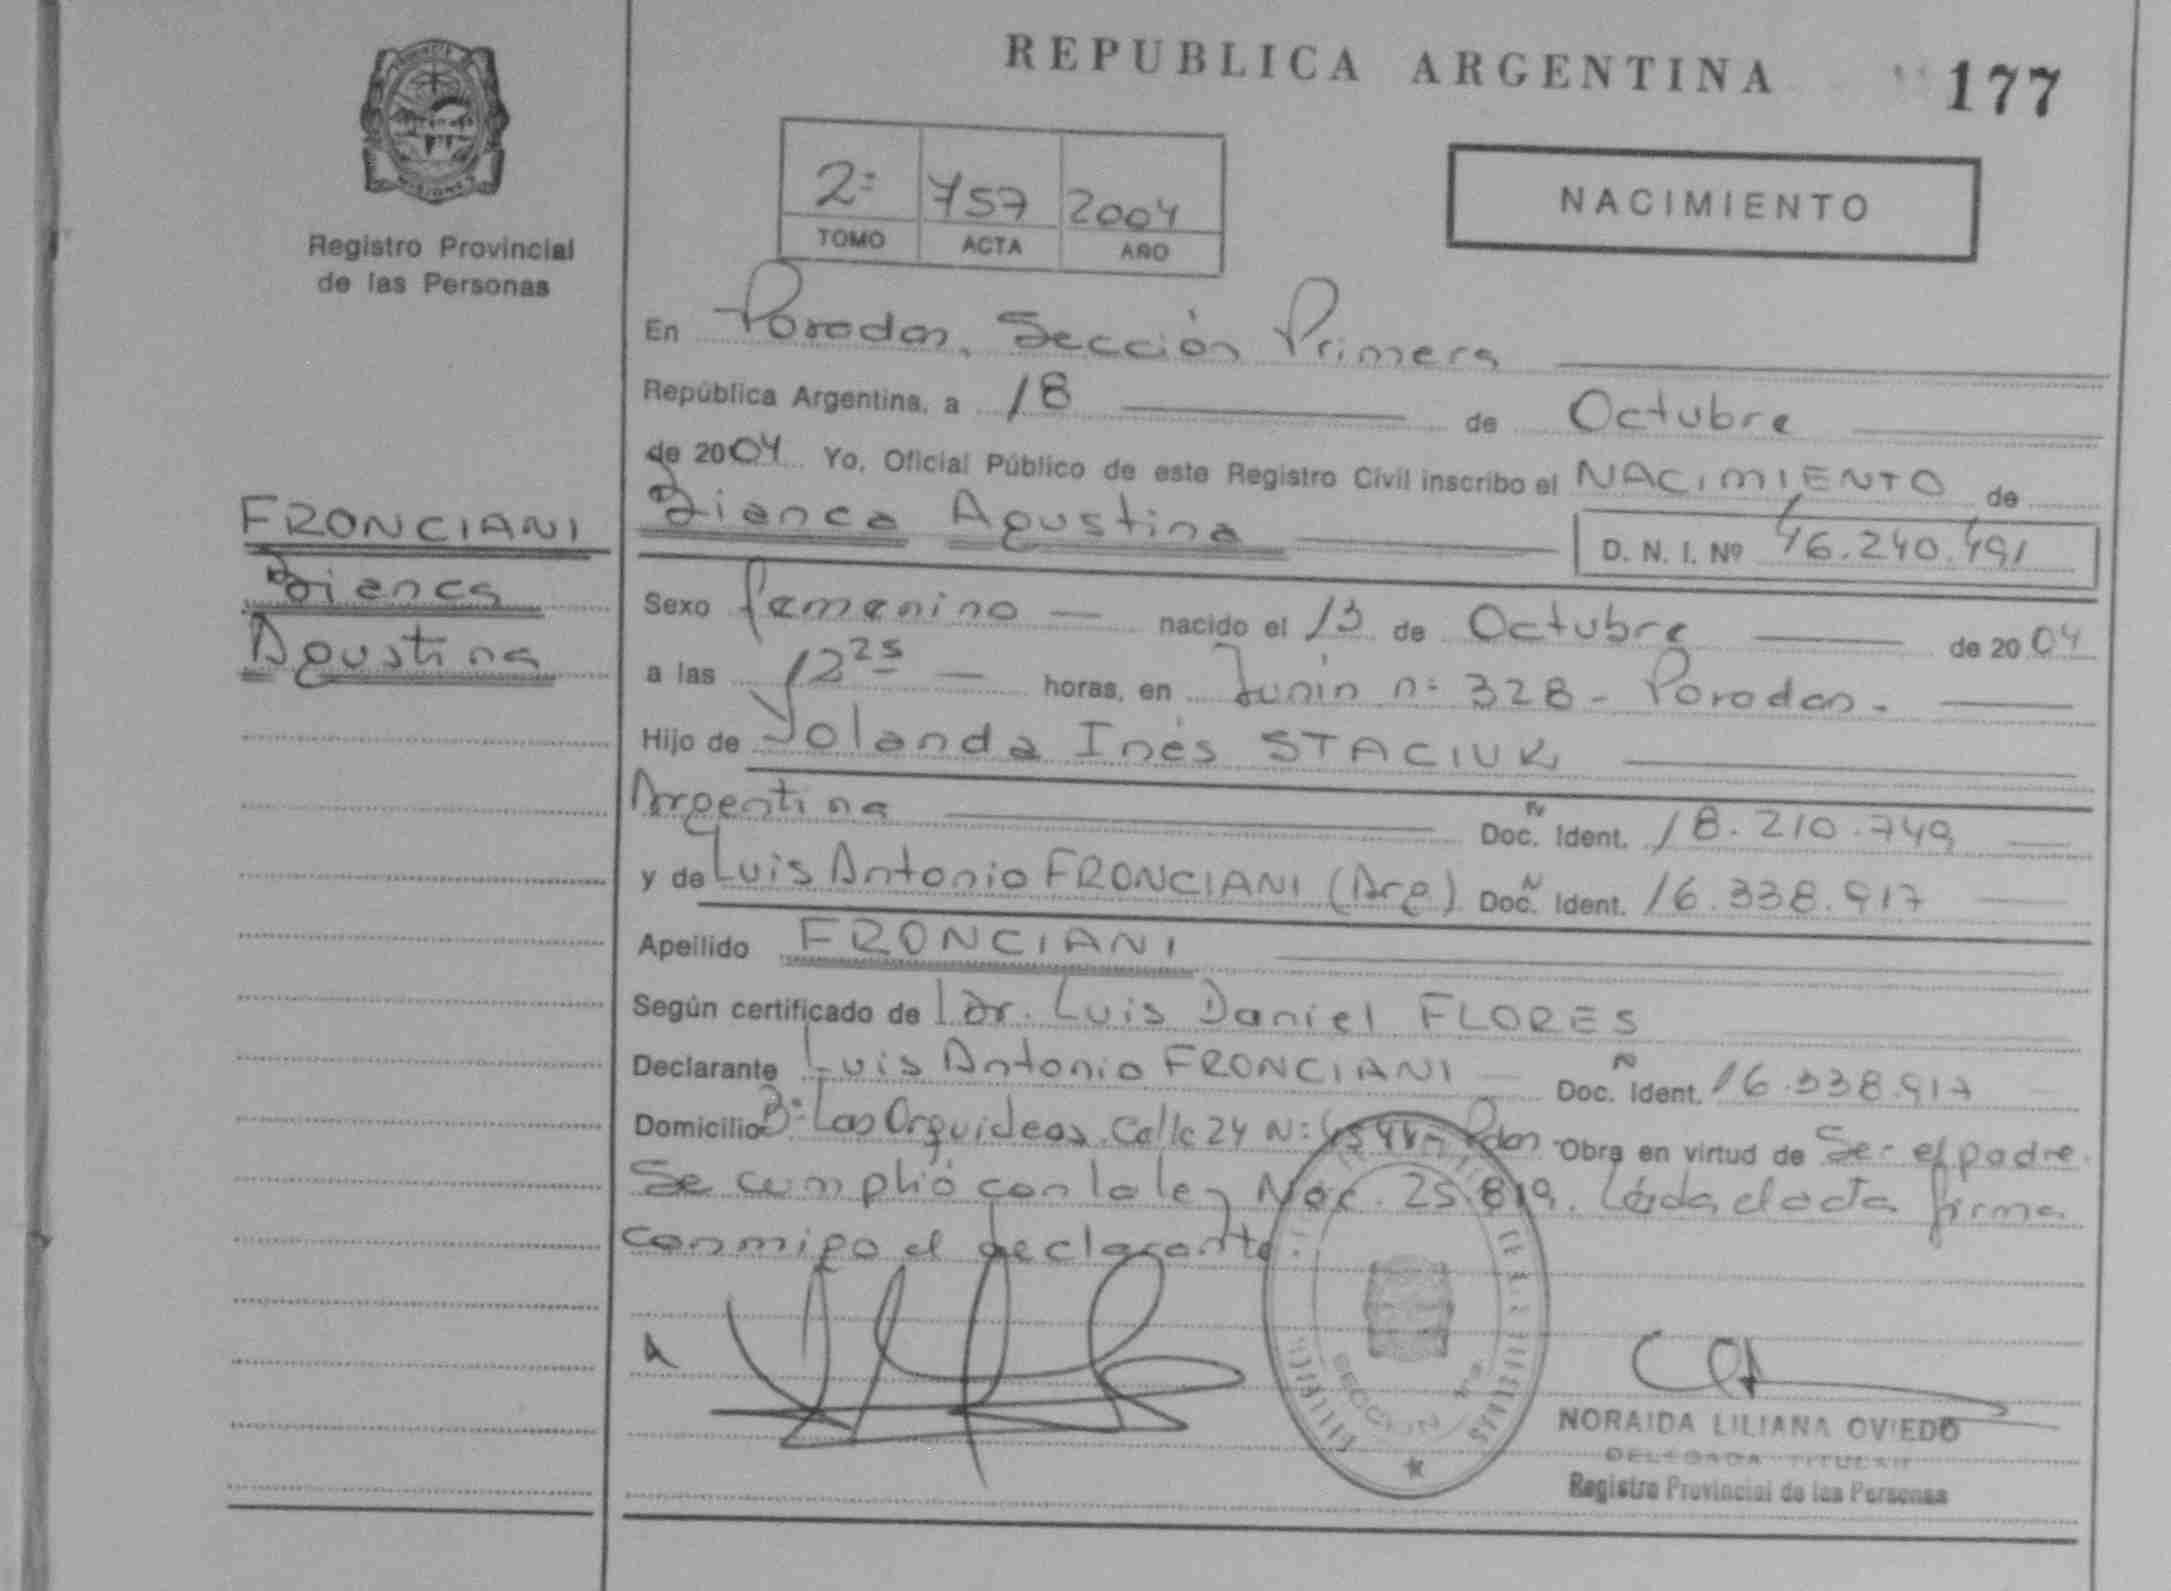 REPUBLICA ARGENTINA
177
Registro Provincial
de las Personas
2º 757 2004
TOMO ACTA AÑO
NACIMIENTO
En Posadas, Sección Primera
República Argentina, a 18 de Octubre
de 2004 Yo, Oficial Público de este Registro Civil inscribo el NACIMIENTO de
Bianca Agustina D. N. I. Nº 46.240.491
FRONCIANI
Bianca
Agustina
Sexo femenino nacido el 13 de Octubre de 2004
a las 12 25 horas, en Junín nº 328 - Posadas.
Hijo de Yolanda Inés STACIUK
Argentina Doc. Ident. 18.210.749
y de Luis Antonio FRONCIANI (Arg) Doc. Ident. 16.338.917
Apellido FRONCIANI
Según certificado de Dr. Luis Daniel FLORES
Declarante Luis Antonio FRONCIANI Doc. Ident. 16.338.917
Domicilio Bº Las Orquideas Calle 24 Nº Pdas Obra en virtud de Ser el padre.
Se cumplió con la ley Nac. 25.819. Leída el acta firma
conmigo el declarante.
SECCION 1ra
NORAIDA LILIANA OVIEDO
DELEGADA TITULAR
Registro Provincial de las Personas